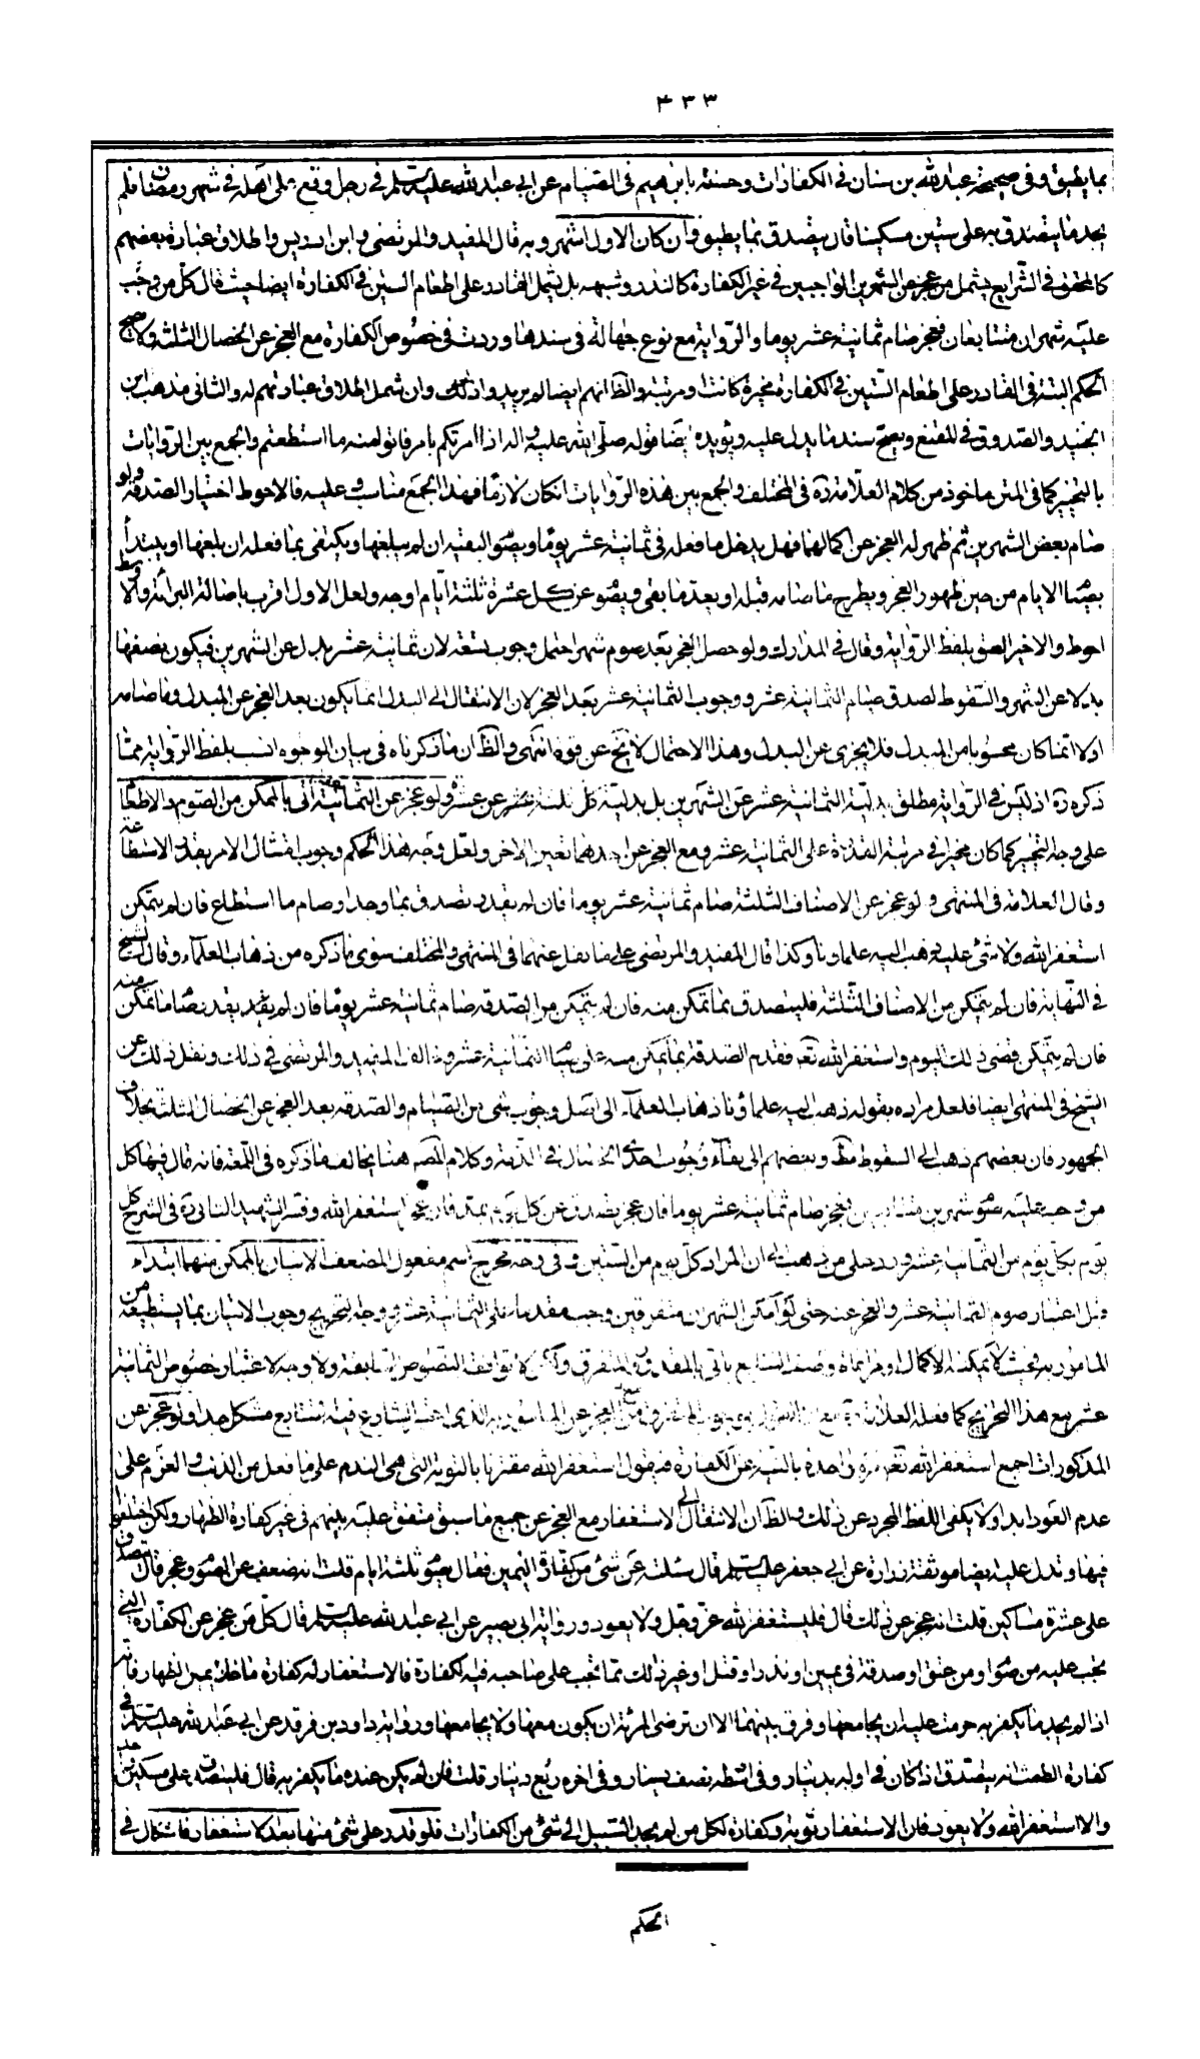 ۴۳۳
بما يطيق وفى صحيحة عبدالله بن سنان فى الكفارات وحسنته بابرهيم فى الصيام عن ابي عبدالله عليه السلم فى رجل وقع على اهله فى شهر رمضان فلم
يجد ما يتصدق به على ستين مسكينا قال يتصدق بما يطيق وان كان الاول اشهر وبه قال المفيد والمرتضى وابن ادريس واطلاق عبارة بعضهم
كالمحقق فى الشرايع يشمل من عجز عن الشهرين الواجبين فى غير الكفارة كالنذر وشبهه بل يشمل القادر على اطعام الستين فى الكفارة ايضا حيث قال كل من وجب
عليه شهران متتابعان فعجز صام ثمانية عشر يوما والرواية مع نوع جهالة فى سندها وردت فى خصوص الكفارة مع العجز عن الخصال الثلثة ولا يصح
الحكم البتة فى القادر على اطعام الستين فى الكفارة مخيرة كانت او مرتبة والظ انهم ايضا لم يريدوا ذلك وان شمل اطلاق عبارتهم له والثانى مذهب ابن
الجنيد والصدوق فى المقنع ويصح سند ما يدل عليه ويؤيده ايضا قوله صلى الله عليه واله اذا امرتكم بامر فاتوا منه ما استطعتم والجمع بين الروايات
بالتخيير كما فى المتن ماخوذ من كلام العلامة ره فى المختلف والجمع بين هذه الروايات ان كان لازما فهذا الجمع مناسب وعليه فالاحوط اختيار الصدقة ولو
صام بعض الشهرين ثم ظهر له العجز عن اكمالهما فهل يدخل ما فعله فى ثمانية عشر يوما ويصوم البقية ان لم يبلغها ويكتفى بما فعله ان بلغها او يبتدأ
بصيام الايام من حين ظهور العجز ويطرح ما صامه قبله او يعد ما بقى ويصوم عن كل عشرة ثلثة ايام اوجه ولعل الاول اقرب باصالة البرائة والاوسط
احوط والاخير الصق بلفظ الرواية وقال فى المدارك ولو حصل العجز بعد صوم شهر احتمل وجوب تسعة لان ثمانية عشر بدل عن الشهرين فيكون نصفها
بدلا عن الشهر والسقوط لصدق صيام الثمانية عشر ووجوب الثمانية عشر بعد العجز لان الانتقال الى البدل انما يكون بعد العجز عن المبدل وما صامه
اولا انما كان محسوبا من المبدل فلا يجزى عن البدل وهذا الاحتمال لا يخ عن قوة انتهى والظ ان ما ذكرناه فى بيان الوجوه انسب بلفظ الرواية مما
ذكره ره اذ ليس فى الرواية مطلق بدلية الثمانية عشر عن الشهرين بل بدلية كل ثلثة عن عشرة ولو عجز عن الثمانية عشر اتى بالممكن من الصوم والاطعام
على وجه التخيير كما كان مخيرا فى مرتبة القدرة على الثمانية عشر ومع العجز عن احدهما تعين الاخر ولعل وجه هذا الحكم وجوب امتثال الامر بقدر الاستطاعة
وقال العلامة فى المنتهى ولو عجز عن الاصناف الثلثة صام ثمانية عشر يوما فان لم يقدر تصدق بما وجد او صام ما استطاع فان لم يتمكن
استغفر الله ولا شئ عليه ذهب اليه علماونا وكذا قال المفيد والمرتضى على ما نقل عنهما فى المنتهى والمختلف سوى ما ذكره من ذهاب العلماء وقال الشيخ
فى النهاية فان لم يتمكن من الاصناف الثلثة فليتصدق بما تمكن منه فان لم يتمكن من الصدقة صام ثمانية عشر يوما فان لم يقدر صام ما تمكن منه
فان لم يتمكن قضى ذلك اليوم واستغفر الله تع فقدم الصدقة بما يمكن منه على صيام الثمانية عشر وخالف المفيد والمرتضى فى ذلك ونقل ذلك عن
الشيخ فى المنتهى ايضا فلعل مراده بقوله ذهب اليه علماؤنا ذهاب العلماء الى اصل وجوب شئ من الصيام والصدقة بعد العجز عن الخصال الثلثة بخلاف
الجمهور فان بعضهم ذهب الى السقوط مط وبعضهم الى بقاء وجوب احدى الخصال فى الذمة وكلام المصه هنا يخالف ما ذكره فى اللمعة فانه قال فيها كل
من وجب عليه صوم شهرين متتابعين فعجز صام ثمانية عشر يوما فان عجز تصدق عن كل يوم بمد فان عجز استغفر الله وفسر الشهيد الثانى ره فى الشرح كل
يوم بكل يوم من الثمانية عشر ورد على من ذهب الى ان المراد كل يوم من الستين وفى وجه مخرج اسم مفعول المضعف الاتيان بالممكن منهما ابتداء
قبل اعتبار صوم الثمانية عشر والعجز عنه حتى لو امكن الشهران متفرقين وجب مقدما على الثمانية عشر ووجه التخريج وجوب الاتيان بما يستطيعه من
المامور به فحيث لا يمكنه الاكمال او مراعاة وصف التتابع ياتى بالمقدور والمتفرق ولكن لا توافقه النصوص السابقة ولا وجه لاعتبار خصوص الثمانية
عشر مع هذا التخريج كما فعله العلامة العجز عن المامور به الذى اعتبر الشارع فيه التتابع مشكل جدا ولو عجز عن
المذكورات اجمع استغفر الله تع مرة واحدة بالنية عن الكفارة فيقول استغفر الله مقترنا بالتوبة التى هى الندم على ما فعل من الذنب والعزم على
عدم العود ابدا ولا يكفى اللفظ المجرد عن ذلك والظ ان الانتقال الى الاستغفار مع العجز عن جميع ما سبق متفق عليه بينهم فى غير كفارة الظهار ولكن اختلفوا
فيها وتدل عليه ايضا موثقة زرارة عن ابي جعفر عليه السلم قال سئلته عن شئ من كفارة اليمين فقال يصوم ثلثة ايام قلت انه ضعف عن الصوم وعجز قال يتصدق
على عشرة مساكين قلت انه عجز عن ذلك قال فليستغفر الله عز وجل ولا يعود ورواية ابى بصير عن ابي عبدالله عليه السلم قال كل من عجز عن الكفارة التى
تجب عليه من صوم او من عتق او صدقة فى يمين او نذر او قتل او غير ذلك مما تجب على صاحبه فيه الكفارة فالاستغفار له كفارة ما خلا يمين الظهار فانه
اذا لم يجد ما يكفر به حرمت عليه ان يجامعها وفرق بينهما الا ان ترضى المرئة ان يكون معها ولا يجامعها ورواية داود بن فرقد عن ابي عبدالله عليه السلم فى
كفارة الطمث انه يتصدق اذا كان فى اوله بدينار وفى وسطه نصف دينار وفى اخره ربع دينار قلت فان لم يكن عنده ما يكفر به قال فليتصدق على مسكين واحد
والا استغفر الله ولا يعود فان الاستغفار توبة وكفارة لكل من لم يجد السبيل الى شئ من الكفارات فلو قدر على شئ منها بعد الاستغفار فاشكال فى
الحكم